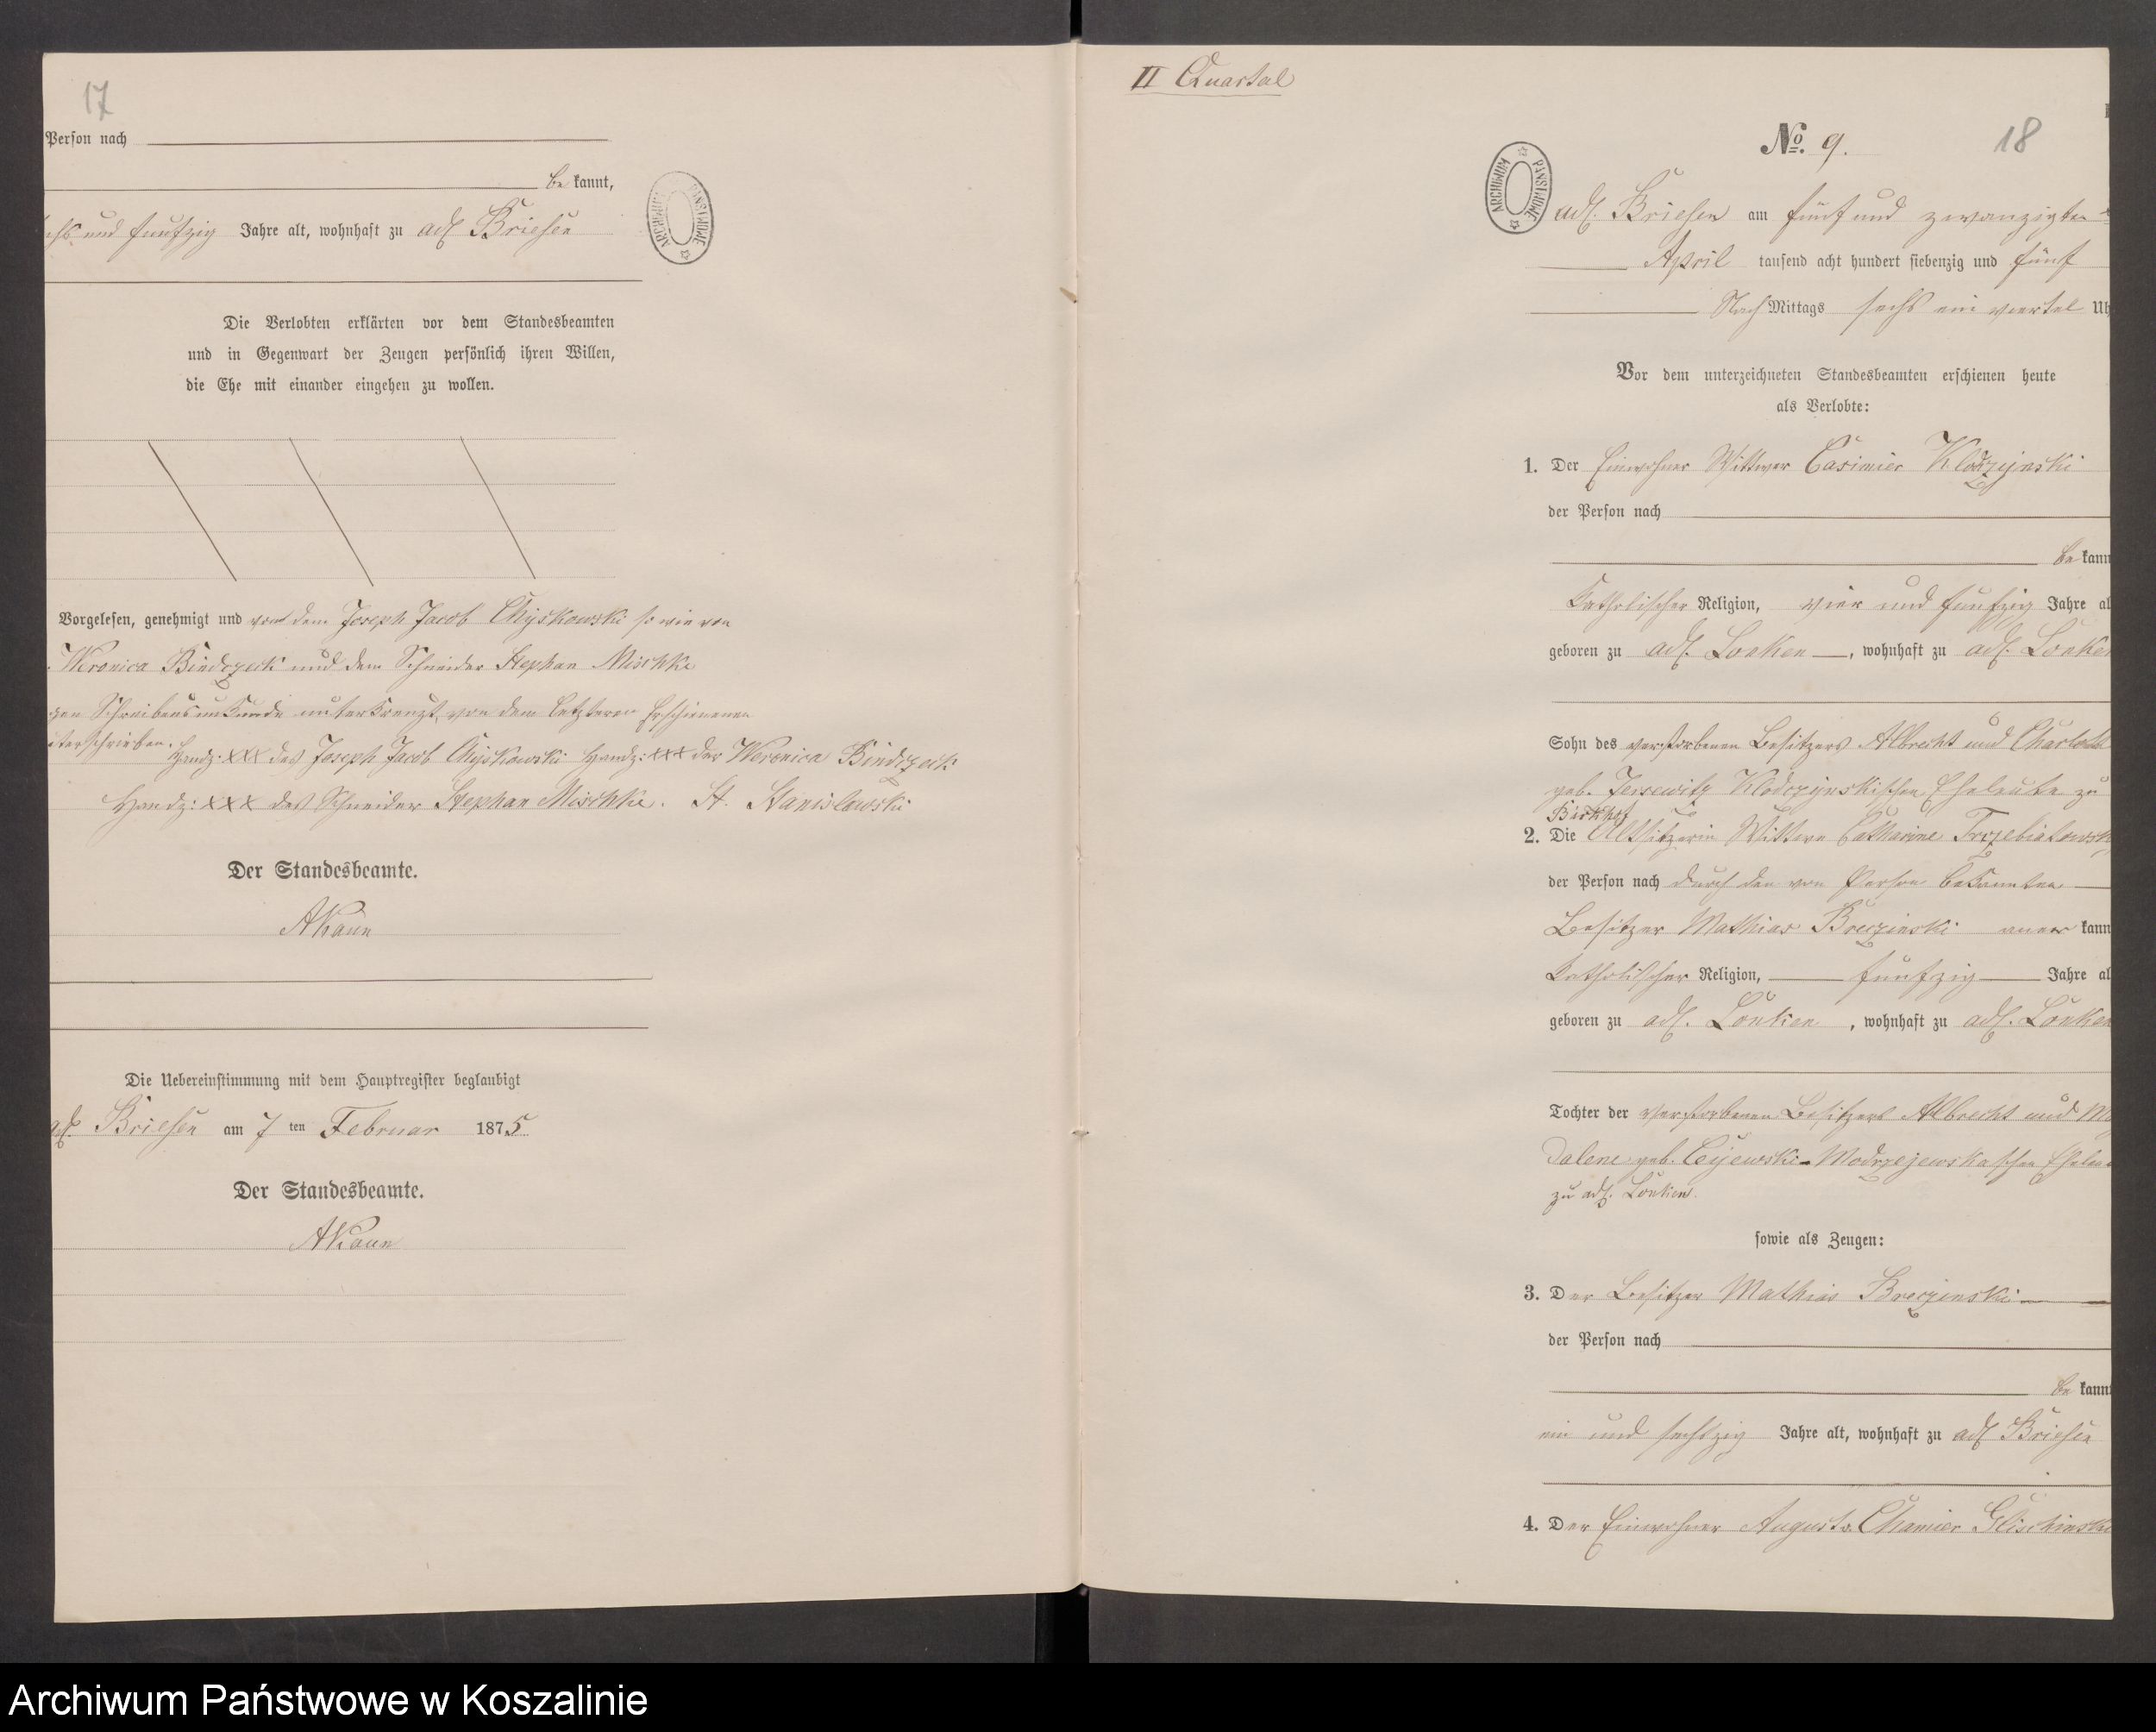 17
Person nach
be kannt,
und funfzig Jahre alt, wohnhaft zu adl Briesen
Die Verlobten erklärten vor dem Standesbeamten
und in Gegenwart der Zeugen persönlich ihren Willen,
die Ehe mit einander eingehen zu wollen.
Vorgelesen, genehmigt und von dem Joseph Jacob Chyskowski so wie von
Weronica Bindczeck und dem Schneider Stephan Mischke
gen Schreibensunkunde unterkreuzt, von dem letzteren Erschienenen
terschrieben. Handz: XXX des Joseph Jacob Chyskowski Handz: XXX der Weronica Bindczeck
Handz: XXX des Schneider Stephan Mischke. St. Stanislawski
Der Standesbeamte.
AKaun
Die Uebereinstimmung mit dem Hauptregister beglaubigt
adl. Briesen am 7 ten Februar 1875.
Der Standesbeamte.
AKaun
II Quartal
No. 9.
18
ARCHIWUM PAŃSTWOWE
adl. Briesen am fünf und zwanzigten
April tausend acht hundert siebenzig und fünf
Nach Mittags sechs ein viertel Uh
Vor dem unterzeichneten Standesbeamten erschienen heute
als Verlobte:
1. Der Einwohner Wittwer Casimier Klodczynski
der Person nach
be kann
Katholischer Religion, vier und funfzig Jahre al
geboren zu adl. Lonken, wohnhaft zu adl. Lonken
Sohn des verstorbenen Besitzers Albrecht und Charlott
geb. Jersewitz Klodczynskischen Eheleute zu
Birkhof
2. Die Altsitzerin Wittwe Catharine Trzebiatowsk
der Person nach durch den von Person bekannten
Besitzer Mathias Breczinski aner kann
Katholischer Religion, funfzig Jahre al
geboren zu adl. Lonken, wohnhaft zu adl. Lonken
Tochter der verstorbenen Besitzers Albrecht und Ma
dalene geb. Cyjewski-Modrzejewskaschen Eheleu
zu adl. Lonken.
sowie als Zeugen:
3. Der Besitzer Mathias Breczinski
der Person nach
be kannt
ein und sechszig Jahre alt, wohnhaft zu adl Briesen
4. Der Einwohner August v. Chamier Glischinski
Archiwum Państwowe w Koszalinie